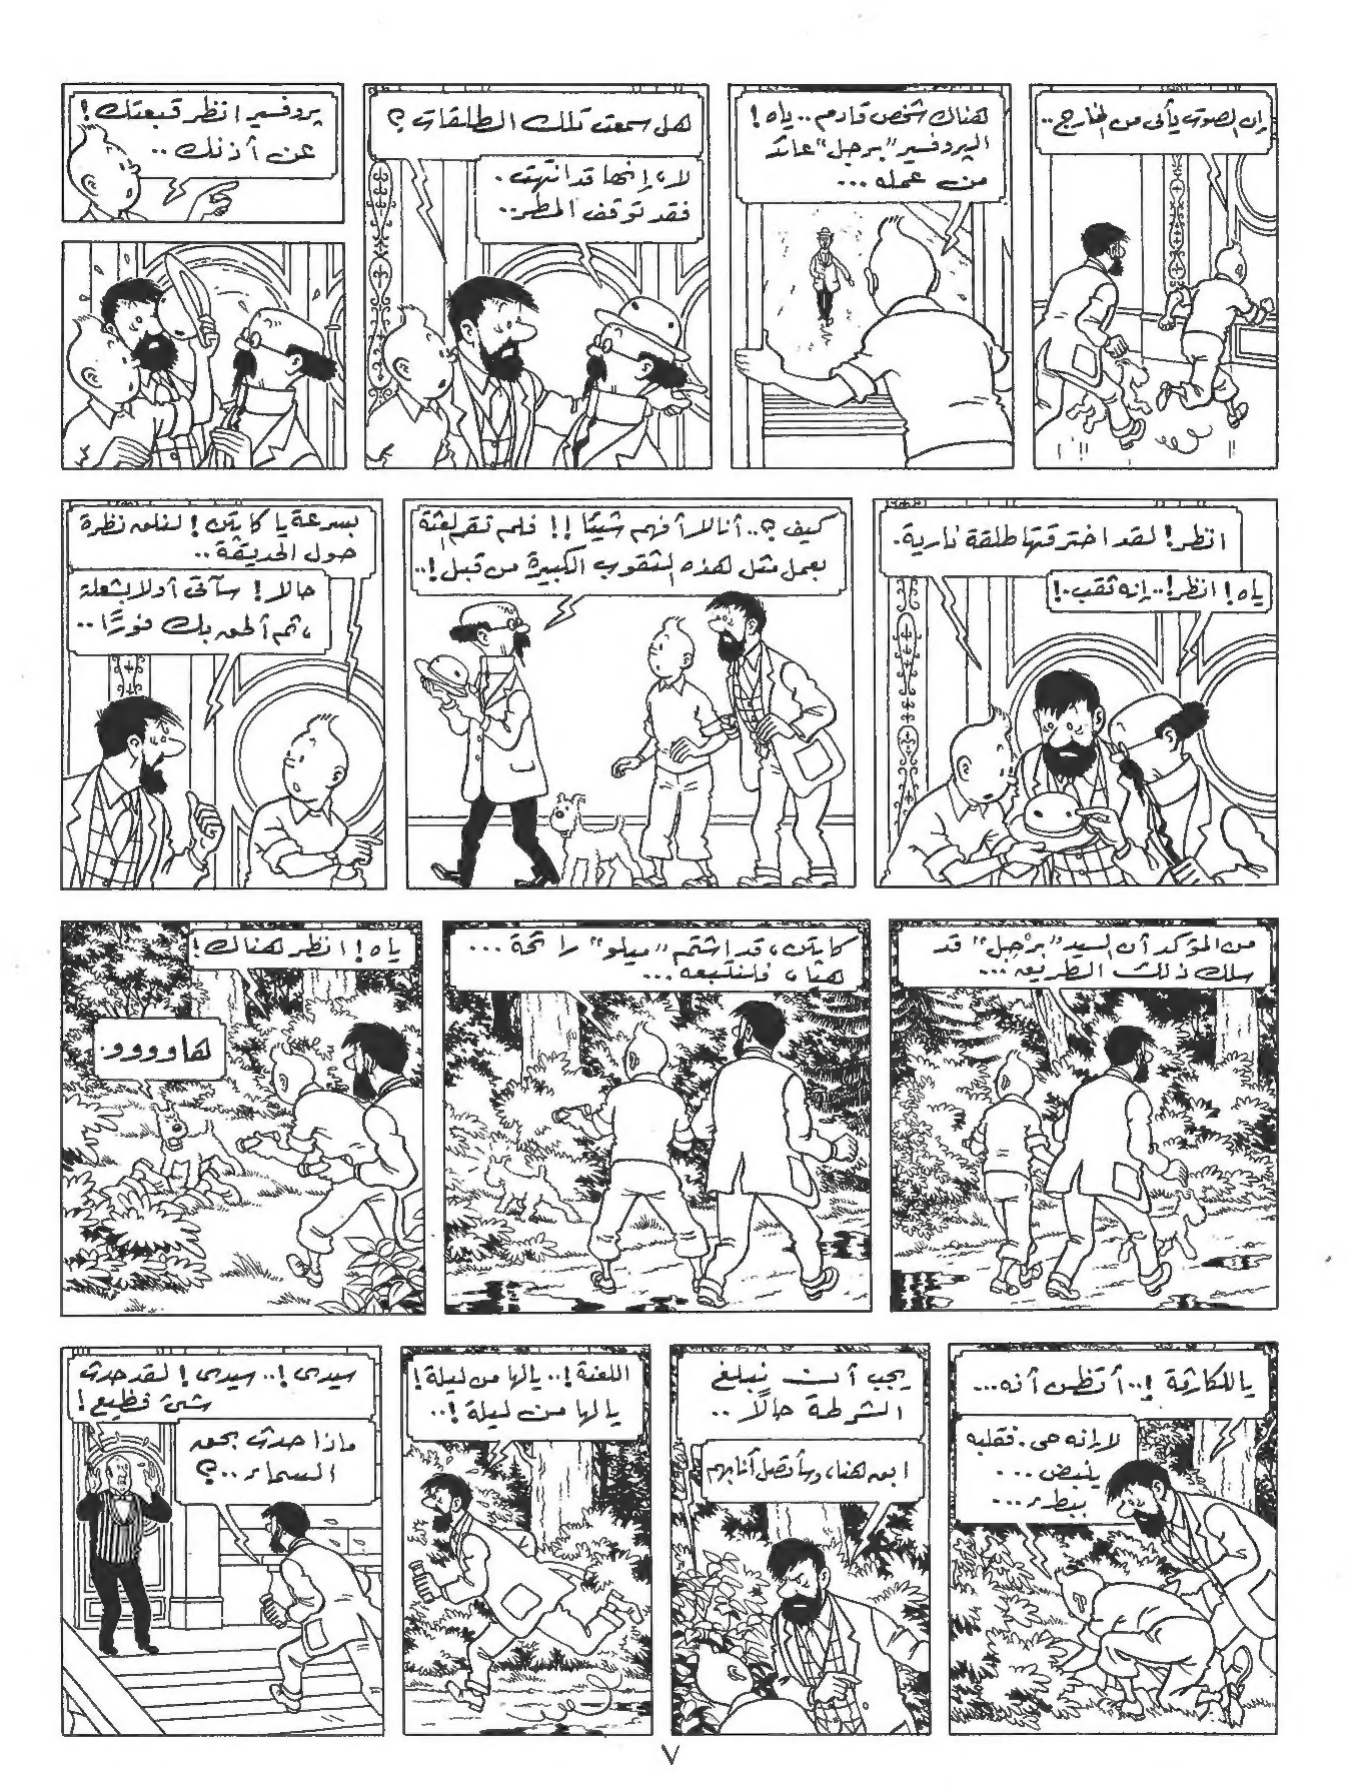 إن الصوت يأتى من الخارج..
هناك شخص قادم.. ياه!
البروفسير "برجل" عائد
من عمله...
هل سمعت تلك الطلقات؟
لا، إنها قد انتهت.
فقد توقف المطر..
پروفسير انظر قبعتك!
عن أذنك..
انظر! لقد اخترقتها طلقة نارية.
ياه! انظر!.. إنه ثقب.!
كيف؟.. أنا لا أفهم شيئا!! فلم تقم لعثة
بعمل مثل هذه الثقوب الكبيرة من قبل!..
بسرعة يا كابتن! لنلق نظرة
حول الحديقة..
حالا! سآتى أولا بشعلة
، ثم ألحق بك فورًا..
من المؤكد أن السيد "برجل" قد
سلك ذلك الطريق...
كابتن، قد اشتم "ميلو" رائحة...
هنا، فلنتبعه...
ياه! انظر هناك!
هاوووو.
ياللكارثة!.. أتظن أنه...
لا، إنه حى. فقلبه
ينبض...
ببطء...
يجب أن نبلغ
الشرطة حالاً..
ابق هنا، وسأتصل أنا بهم
اللعنة!.. يالها من ليلة!
يالها من ليلة!..
سيدى!.. سيدى! لقد حدث
شئ فظيع!
ماذا حدث بحق
السماء..؟
٧